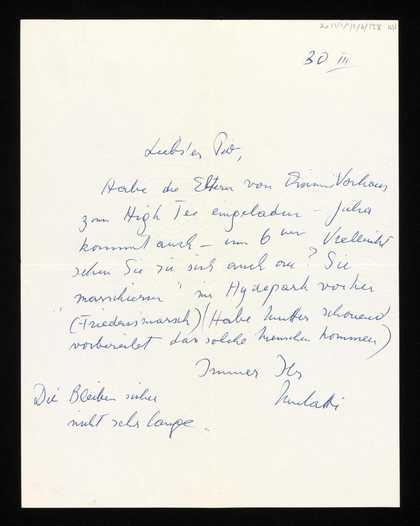 30 III
Liebster
Habe die Eltern von Vorhaus
zum High Tee eingeladen – Julia
kommt auch – um 6 Uhr Vielleicht
sehen Sie sie sich auch an? Sie
"marschieren" im Hydepark vorher
(Friedensmarsch) (Habe Mutter schonend
vorbereitet das solche Menschen kommen)
Immer Ihr
Die Bleiben sicher
nicht sehr lange.